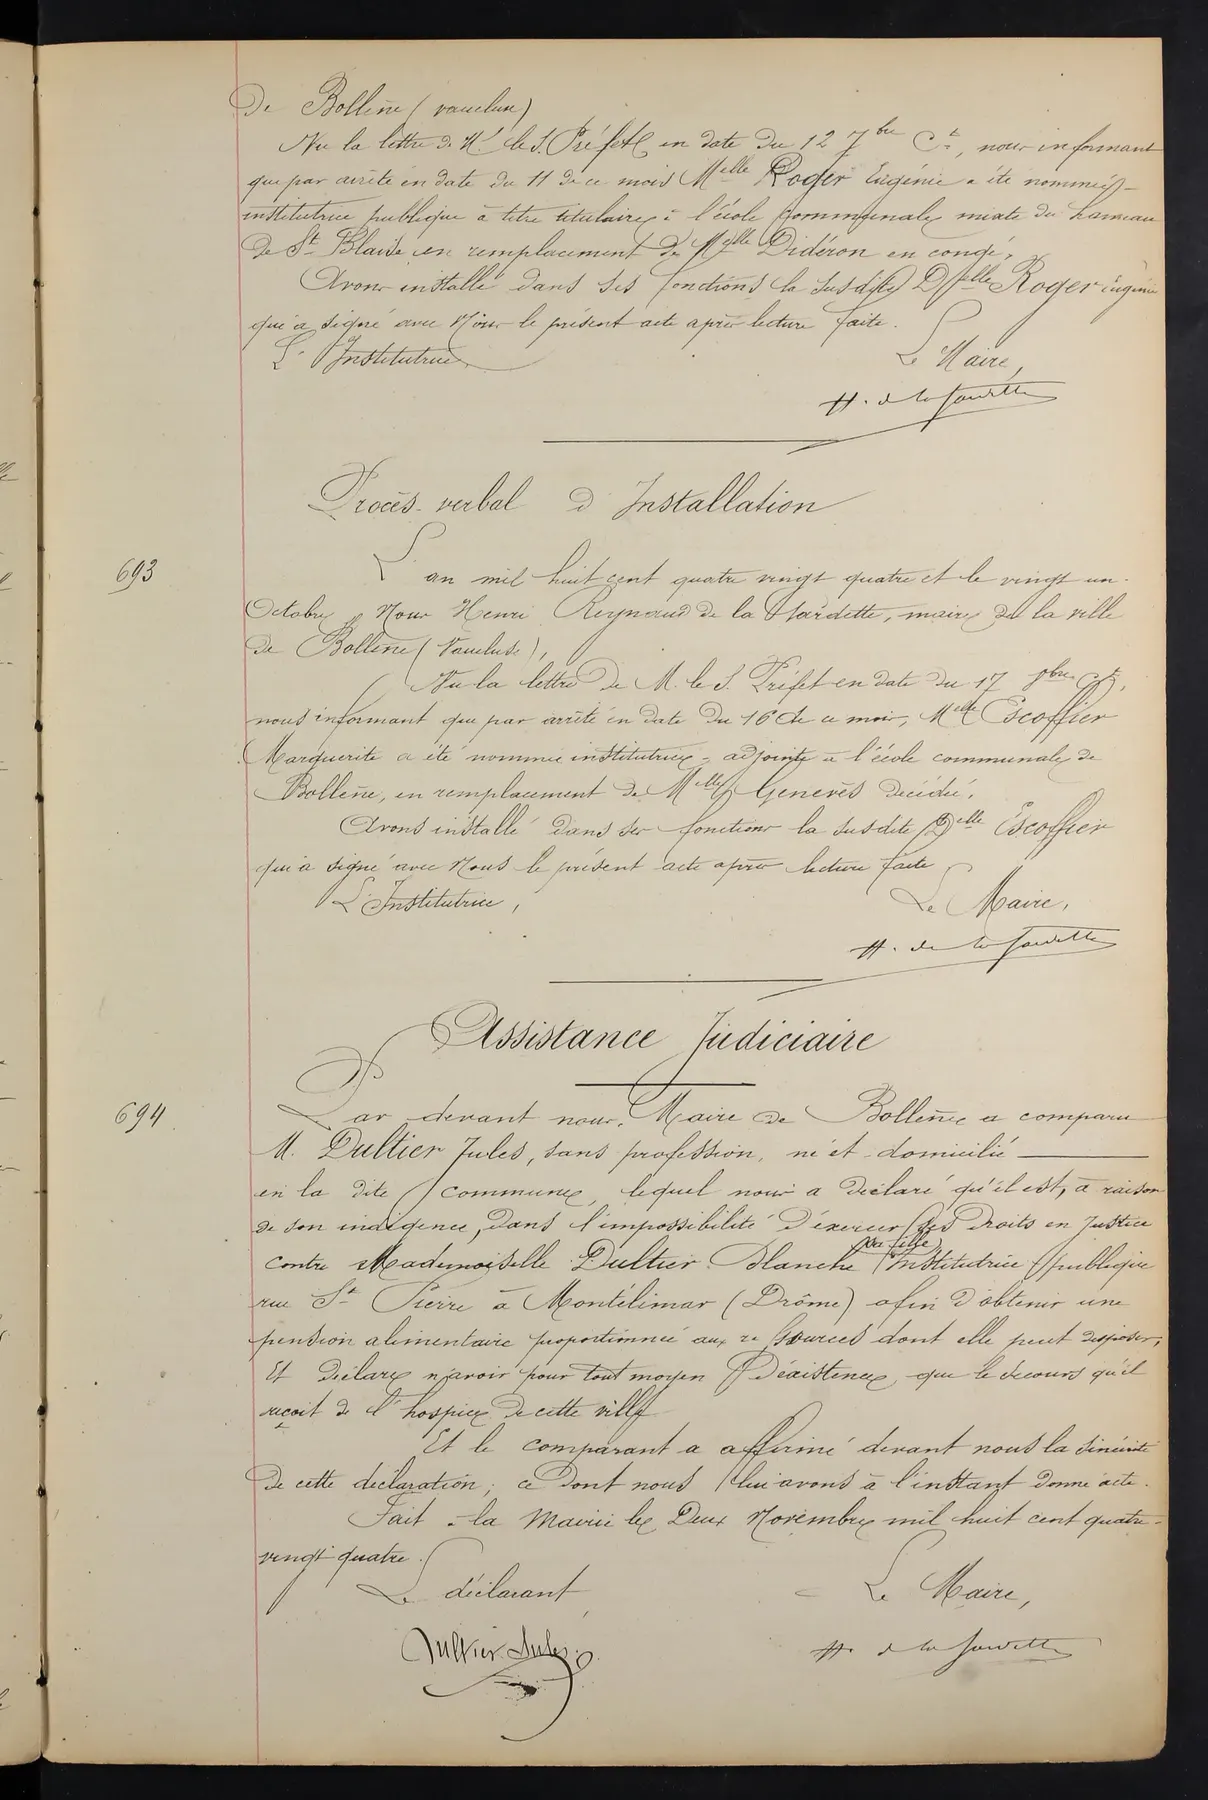 De Bollène (vaucluse)
Vu la lettre de M. le S. Préfet en date du 12 7bre Ct, nous informant
que par arrêté en date du 11 de ce mois Melle Roger Eugénie a été nommée
institutrice publique à titre titulaire à l'école communale mixte du hameau
de St Blaise en remplacement de Melle Didéron en congé,
Avons installé dans ses fonctions la susdite Delle Roger Eugénie
qui a signé avec Nous le présent acte après lecture faite.
L'Institutrice
Le Maire,
H. de la
Procès-verbal d'Installation
693
L'an mil huit cent quatre vingt quatre et le vingt un
Octobre, Nous Henri Reynaud de la Gardette, maire de la ville
de Bollène (Vaucluse),
Vu la lettre de M. le S. Préfet en date du 17 Ct,
nous informant que par arrêté en date du 16 de ce mois, Melle Escoffier
Marguerite a été nommée institutrice-adjointe à l'école communale de
Bollène, en remplacement de Melle Genevès décédé,
Avons installé dans ses fonctions la susdite Delle Escoffier
qui a signé avec Nous le présent acte après lecture faite
L'Institutrice,
Le Maire,
H. de la
Assistance Judiciaire
694
Par devant nous, Maire de Bollène a comparu
M. Dultier Jules, sans profession, né et domicilié
en la dite commune, lequel nous a déclaré qu'il est, à raison
de son indigence, dans l'impossibilité d'exercer ses droits en Justice
contre Mademoiselle Dultier Blanche sa fille Institutrice publique
rue St Pierre à Montélimar (Drôme) afin d'obtenir une
pension alimentaire proportionnée aux ressources dont elle peut disposer;
Et déclare n'avoir pour tout moyen d'existence, que le secours qu'il
reçoit de l'hospice de cette ville
Et le comparant a affirmé devant nous la sincérité
de cette déclaration; ce dont nous lui avons à l'instant donné acte.
Fait à la Mairie le Deux Novembre mil huit cent quatre-
vingt quatre.
Le déclarant
Le Maire,
Dultier Jules
H. de la